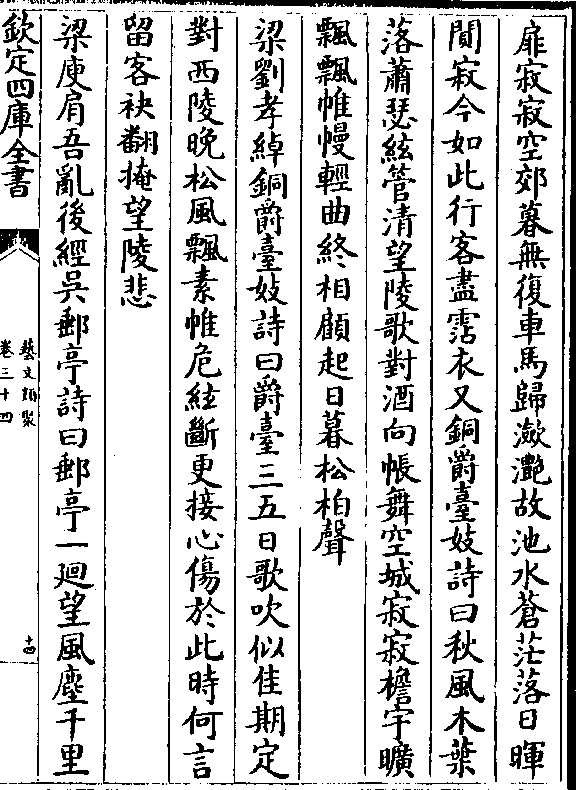 扉寂寂空郊暮無復車馬歸瀲灧故池水蒼茫落日暉
閴寂今如此行客盡霑衣又銅爵臺妓詩曰秋風木葉
落蕭瑟絃管清望陵歌對酒向帳舞空城寂寂檐宇曠
飄飄帷幔輕曲終相顧起日暮松柏聲
梁劉孝綽銅爵臺妓詩曰爵臺三五日歌吹似佳期定
對西陵晚松風飄素帷危絃斷更接心傷於此時何言
留客袂翻掩望陵悲
梁庾肩吾亂後經吳郵亭詩曰郵亭一廻望風塵千里
欽定四庫全書
藝文類聚
卷三十四
十四